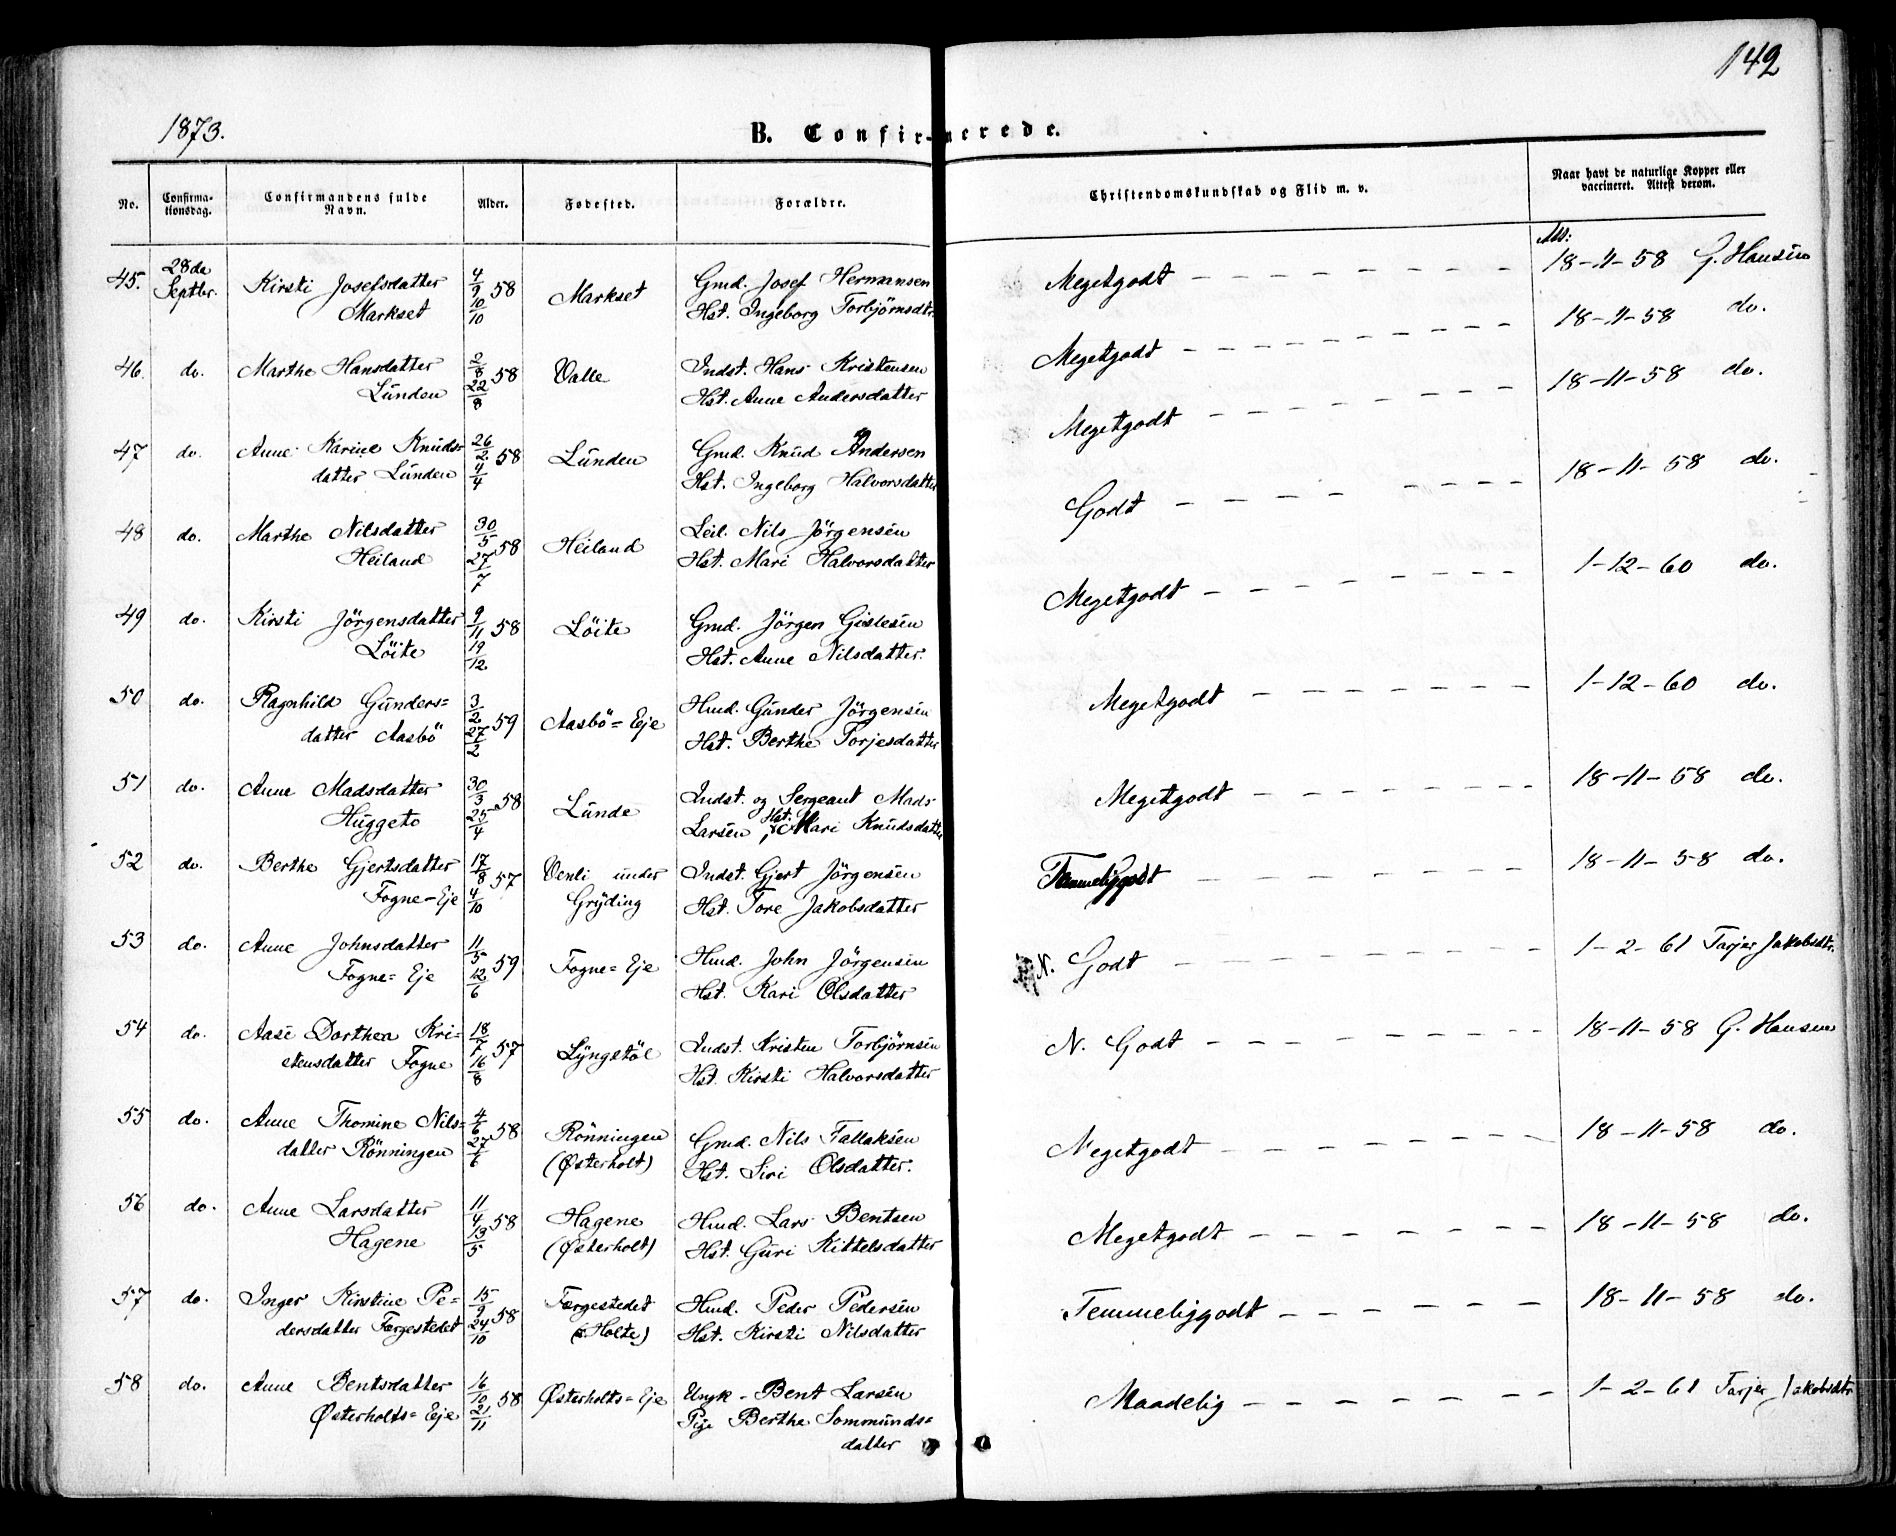 142
1873.
B. Confirmerede.
No.
Confirma-
tionsdag.
Confirmandens fulde
Navn.
Alder.
Fødested.
Forældre.
Christendomskundskab og Flid m. v.
Naar havt de naturlige Kopper eller
vaccineret. Attest derom.
45. 28de Septbr. Kirsti Josefsdatter Markset 4/9 58 10/10 Markset Gmd. Josef Hermansen Hst. Ingeborg Torbjörnsdtr. Megetgodt 18-11-58 G. Hansen
46. do. Marthe Hansdatter Lunden 2/8 58 22/8 Valle Indst. Hans Kristensen Hst. Anne Andersdatter Megetgodt 18-11-58 do.
47 do. Anne Karine Knuds= datter Lunden 26/2 58 4/4 Lunden Gmd. Knud Andersen Hst. Ingeborg Halvorsdatter Megetgodt 18-11-58 do.
48 do. Marthe Nilsdatter Heiland 30/5 58 27/7 Heiland Leil. Nils Jörgensen Hst. Mari Halvorsdatter Godt 18-11-58 do.
49 do. Kirsti Jörgensdatter Löite 9/11 58 19/12 Löite Gmd. Jörgen Gislesen Hst. Anne Nilsdatter. Megetgodt 1-12-60 do.
50 do. Ragnhild Gunders= datter Aasbö 3/2 59 27/2 Aasbö=Eje Hmd. Gunder Jörgensen Hst. Berthe Torjesdatter Megetgodt 1-12-60 do.
51 do. Anne Madsdatter Huggeto 30/3 58 25/4 Lunde Indst. og Sergeant Mads Larsen, Hst. Mari Knudsdatter Megetgodt 18-11-58 do.
52 do. Berthe Gjertsdatter Fogne=Eje 17/8 57 4/10 Venli under Gryding Indst. Gjert Jörgensen Hst. Tore Jakobsdatter Temmeliggodt 18-11-58 do.
53 do. Anne Johnsdatter Fogne=Eje 11/5 59 12/6 Fogne=Eje Hmd. John Jörgensen Hst. Kari Olsdatter N. Godt 1-2-61 Tarjer Jakobsdtr.
54 do. Aase Dorthea Kri= stensdatter Fogne 18/7 57 16/8 Lyngstöl Indst. Kristen Torbjörnsen Hst. Kirsti Halvorsdatter N. Godt 18-11-58 G. Hansen
55 do. Anne Thomine Nils= datter Rönningen 4/6 58 27/6 Rönningen (Østerholt) Gmd. Nils Tallaksen Hst. Siri Olsdatter. Megetgodt 18-11-58 do.
56 do. Anne Larsdatter Hagene 11/4 58 13/5 Hagene (Østerholt) Hmd. Lars Bentsen Hst. Guri Kittelsdatter Megetgodt 18-11-58 do.
57 do. Inger Kirstine Pe= dersdatter Færgestedet 15/9 58 24/10 Færgestedet (Holte) Hmd. Peder Pedersen Hst. Kirsti Nilsdatter Temmeliggodt 18-11-58 do.
58 do. Anne Bentsdatter Østerholts=Eje 16/10 58 21/11 Østerholts=Eje Ungk. Bent Larsen Pige Berthe Sommunds= datter Maadelig 1-2-61 Tarjer Jakobsdtr